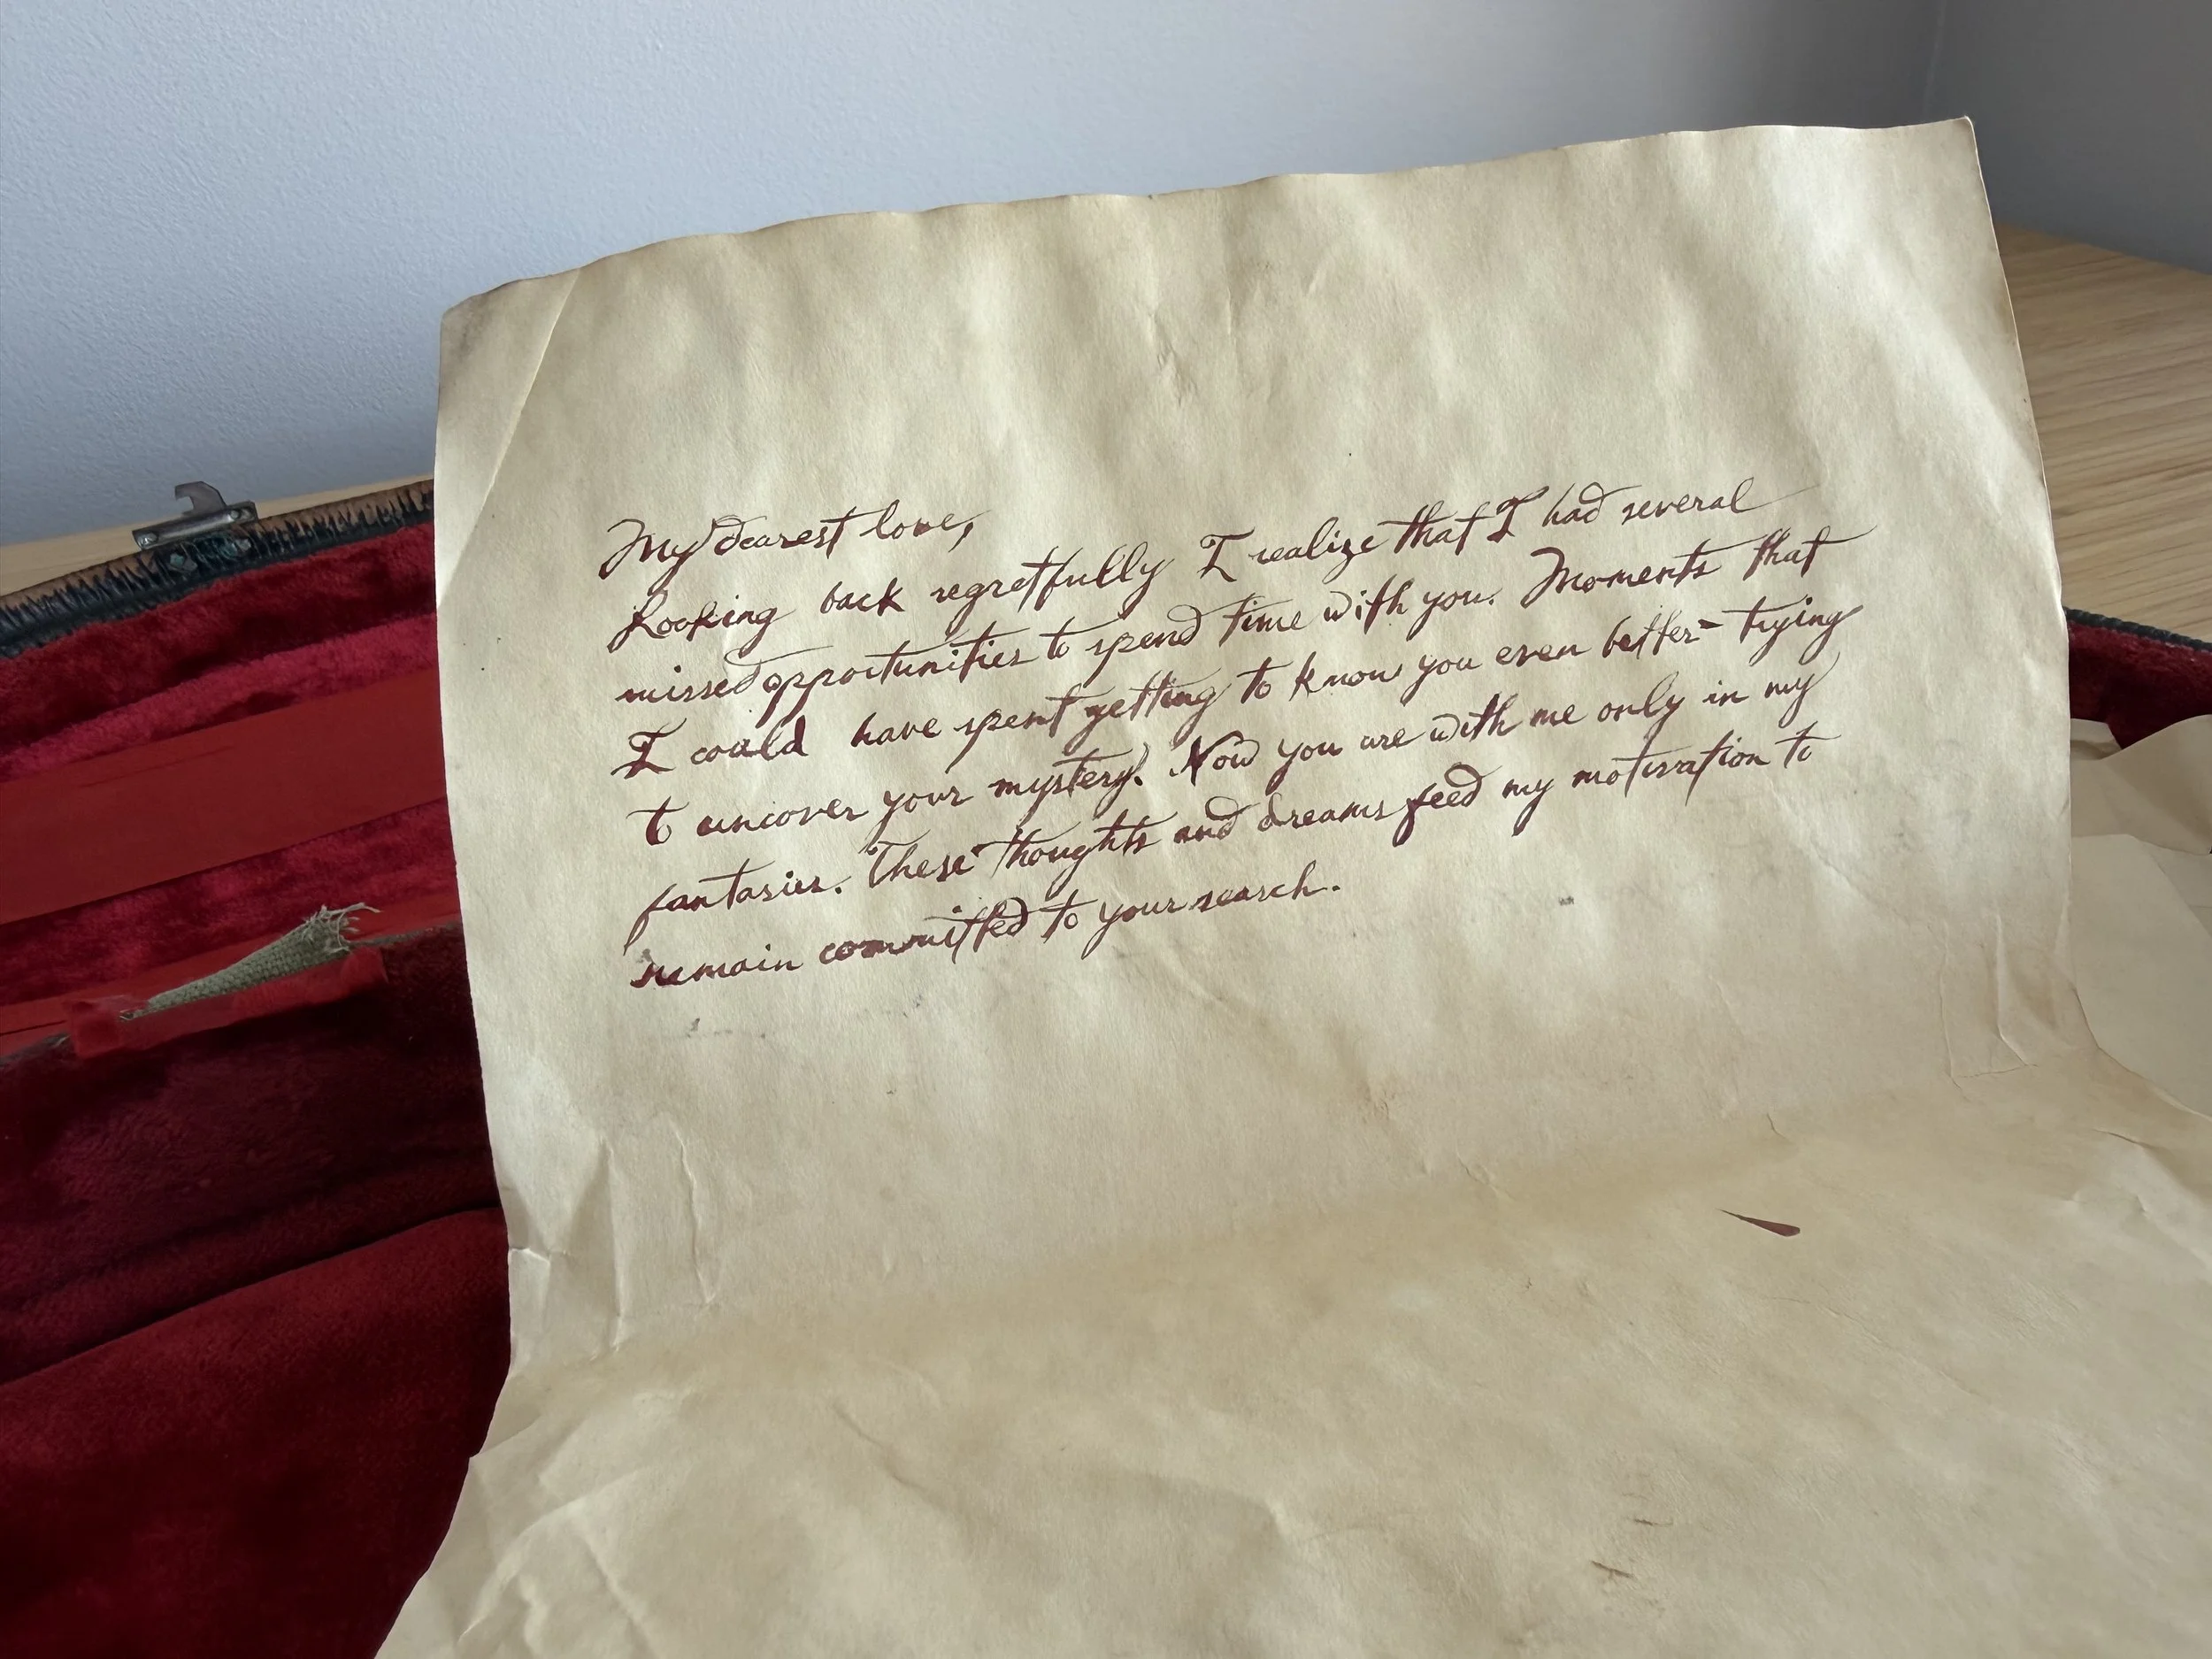 My dearest love,
Looking back regretfully I realize that I had several
missed opportunities to spend time with you. Moments that
I could have spent getting to know you even better - trying
to uncover your mystery. Now you are with me only in my
fantasies. These thoughts and dreams feed my motivation to
remain committed to your search.